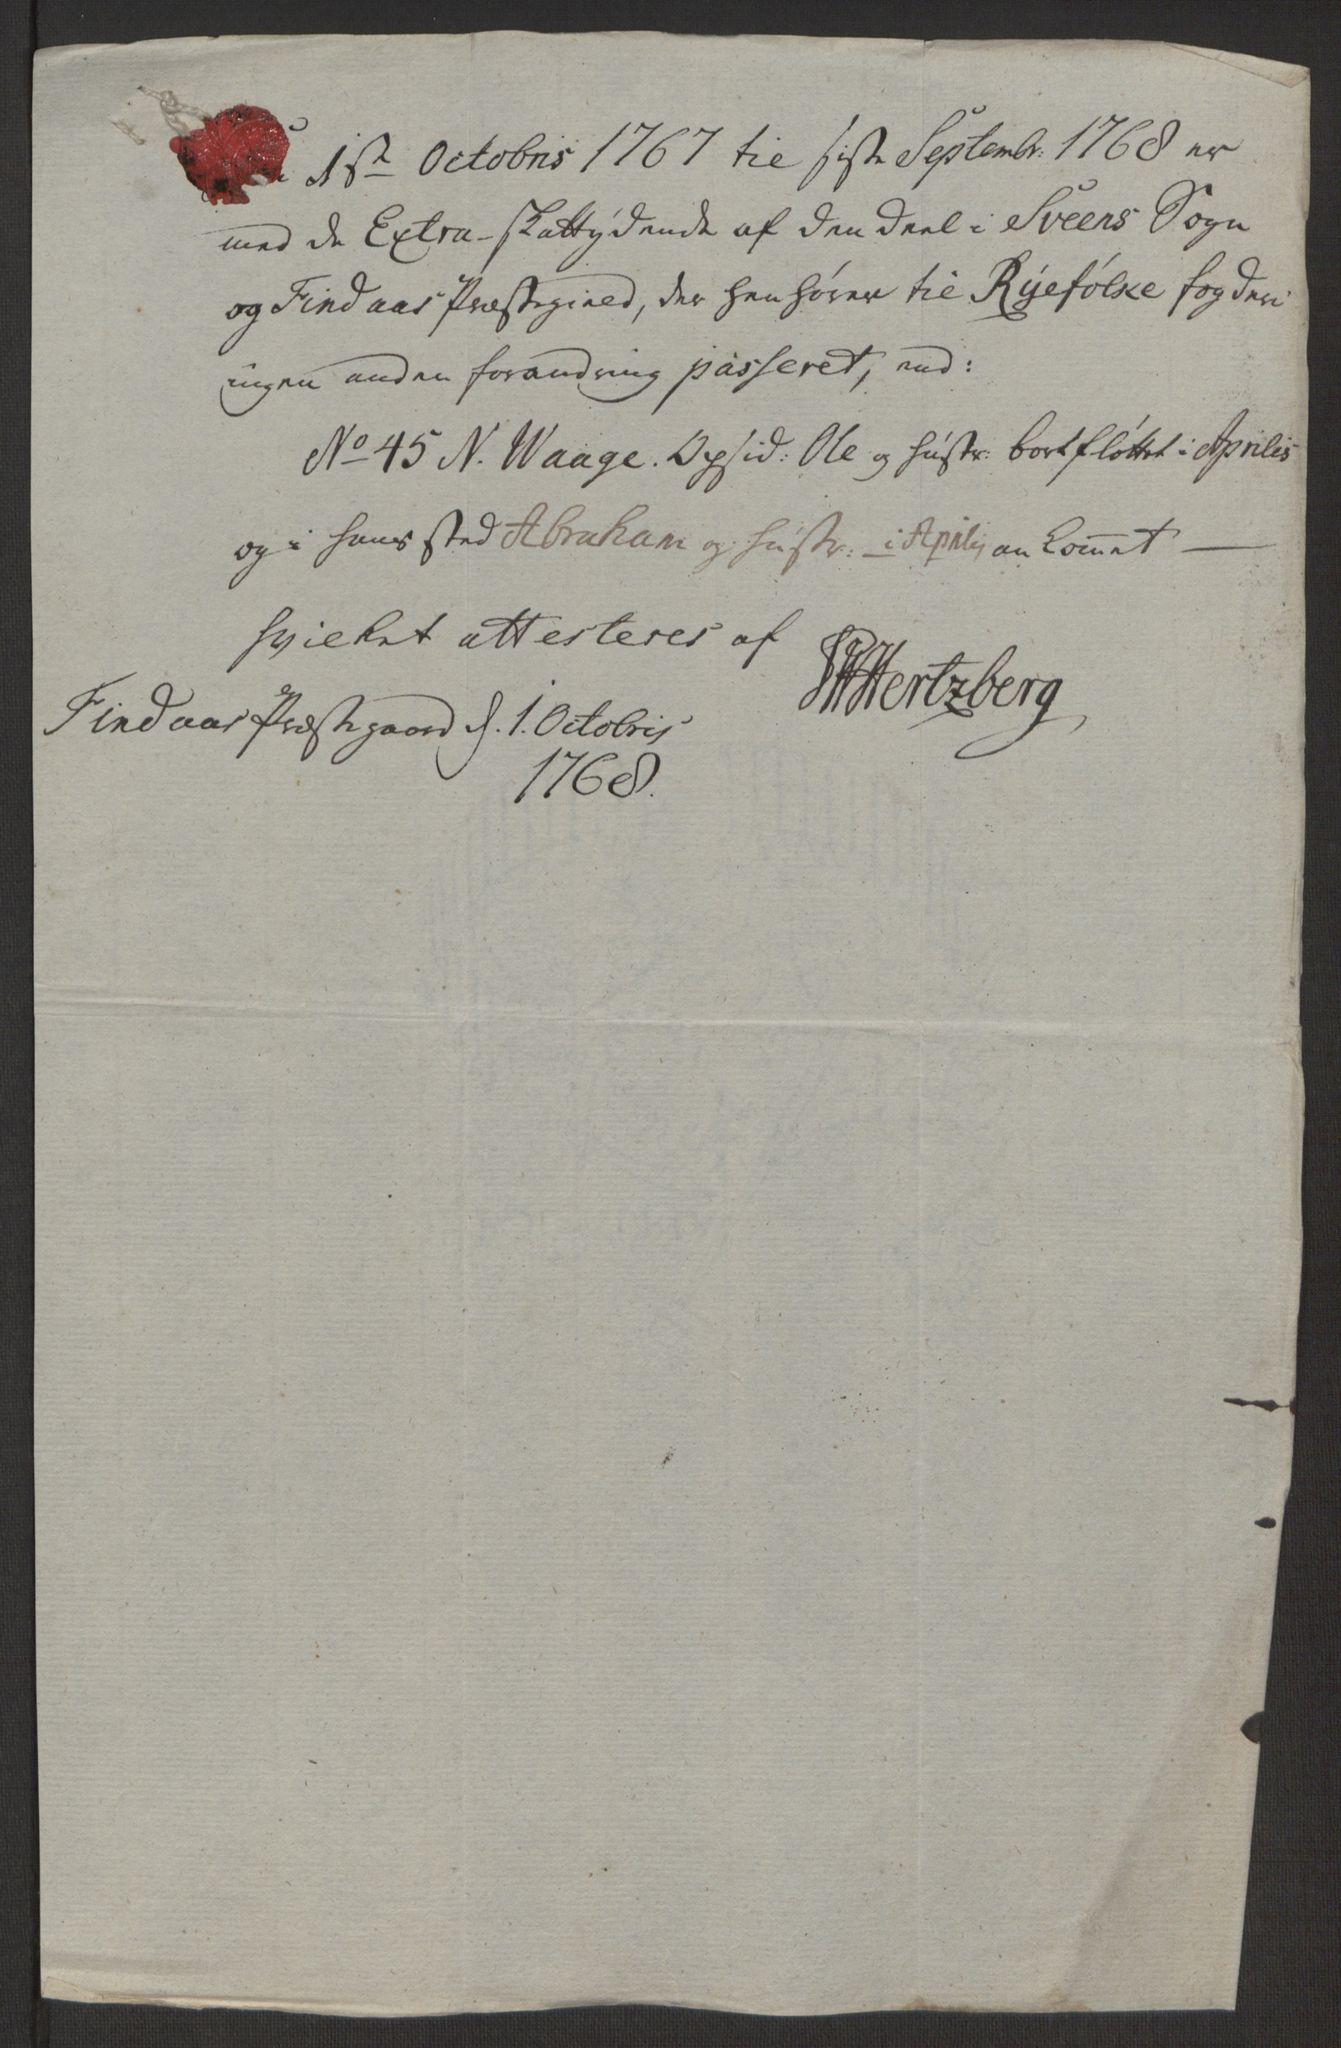 1ste Octobris 1767 til siste Septembr: 1768 er
med de Extra-skattÿdende af den deel i Sveens Sogn
og Findaas Præstegield, der henhører til Rÿefølke fogderi
ingen anden forandring passeret, end:
No 45 N. Waage. Opsid: Ole og hustr: bortfløttet i Aprilis
og i hans sted Abraham og hustr: i Aprilis ankommet —
hvilket attesteres af
Hertzberg
Findaas Præstegaard d. 1. Octobris
1768.